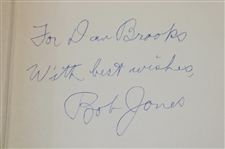 For Dan Brooks
With best wishes,
Bob Jones